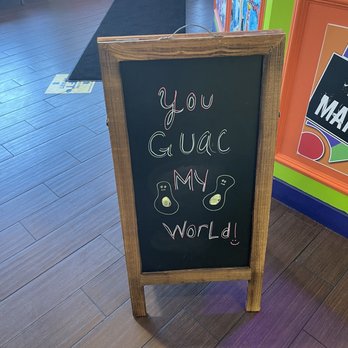 You
Guac
My
World!
MAR